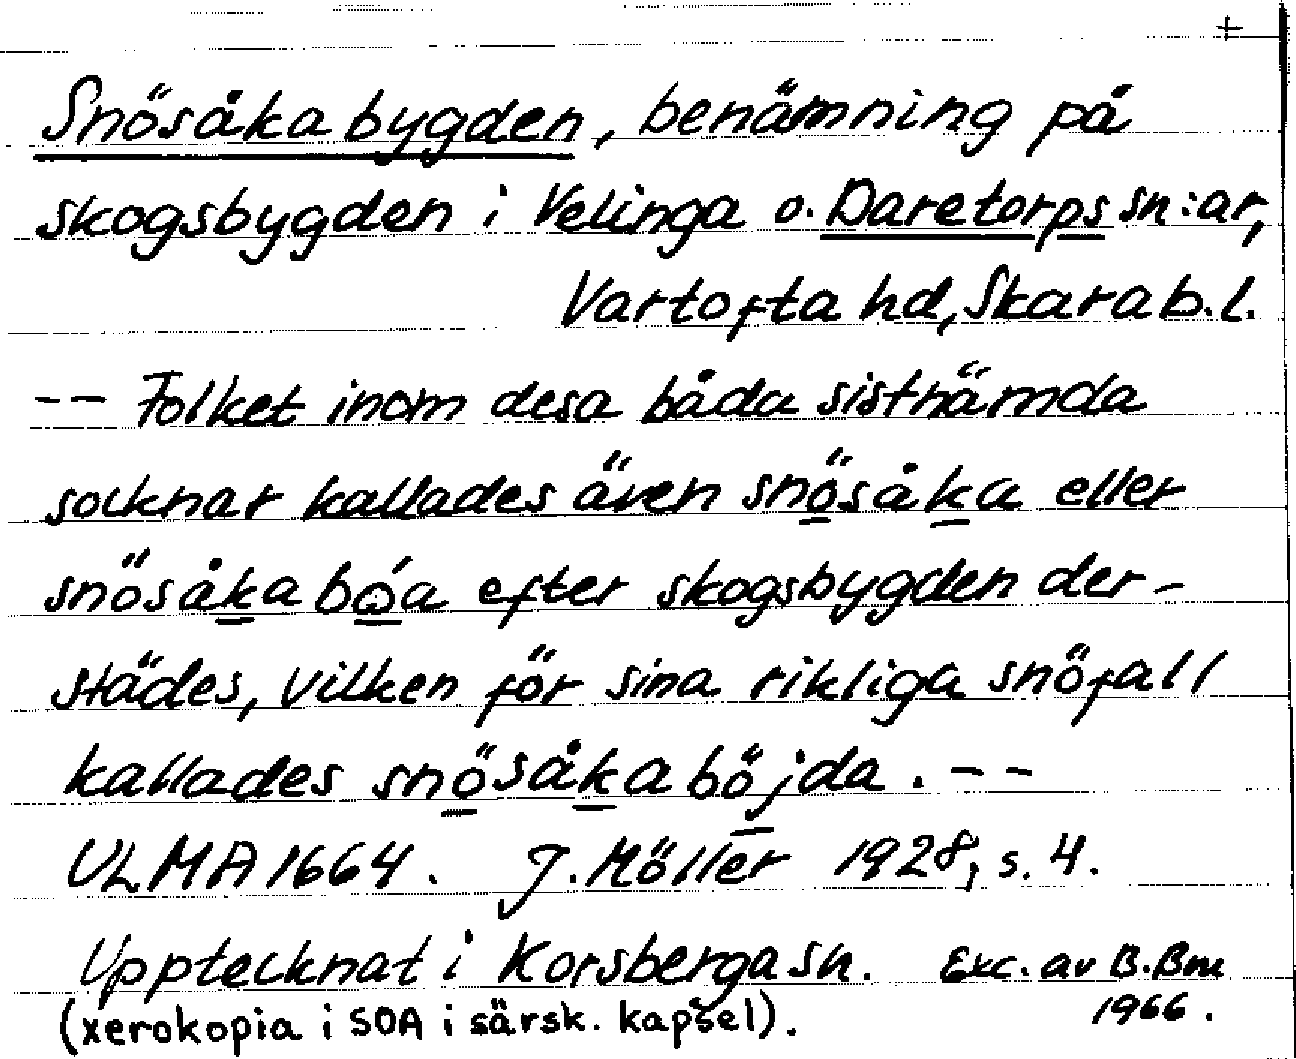 +
Snösåkabygden, benämning på
skogsbygden i Velinga o. Daretorps sn:ar,
Vartofta hd, Skarab.l.
-- Folket inom desa båda sistnämda
socknar kallades även snösåka eller
snösåkabóa efter skogsbygden der-
städes, vilken för sina rikliga snöfall
kallades snösåkaböjda. --
ULMA 1664. J. Möller 1928, s. 4.
Upptecknat i Korsberga sn. Exc. av B.Bm
1966.
(xerokopia i SOA i särsk. kapsel).